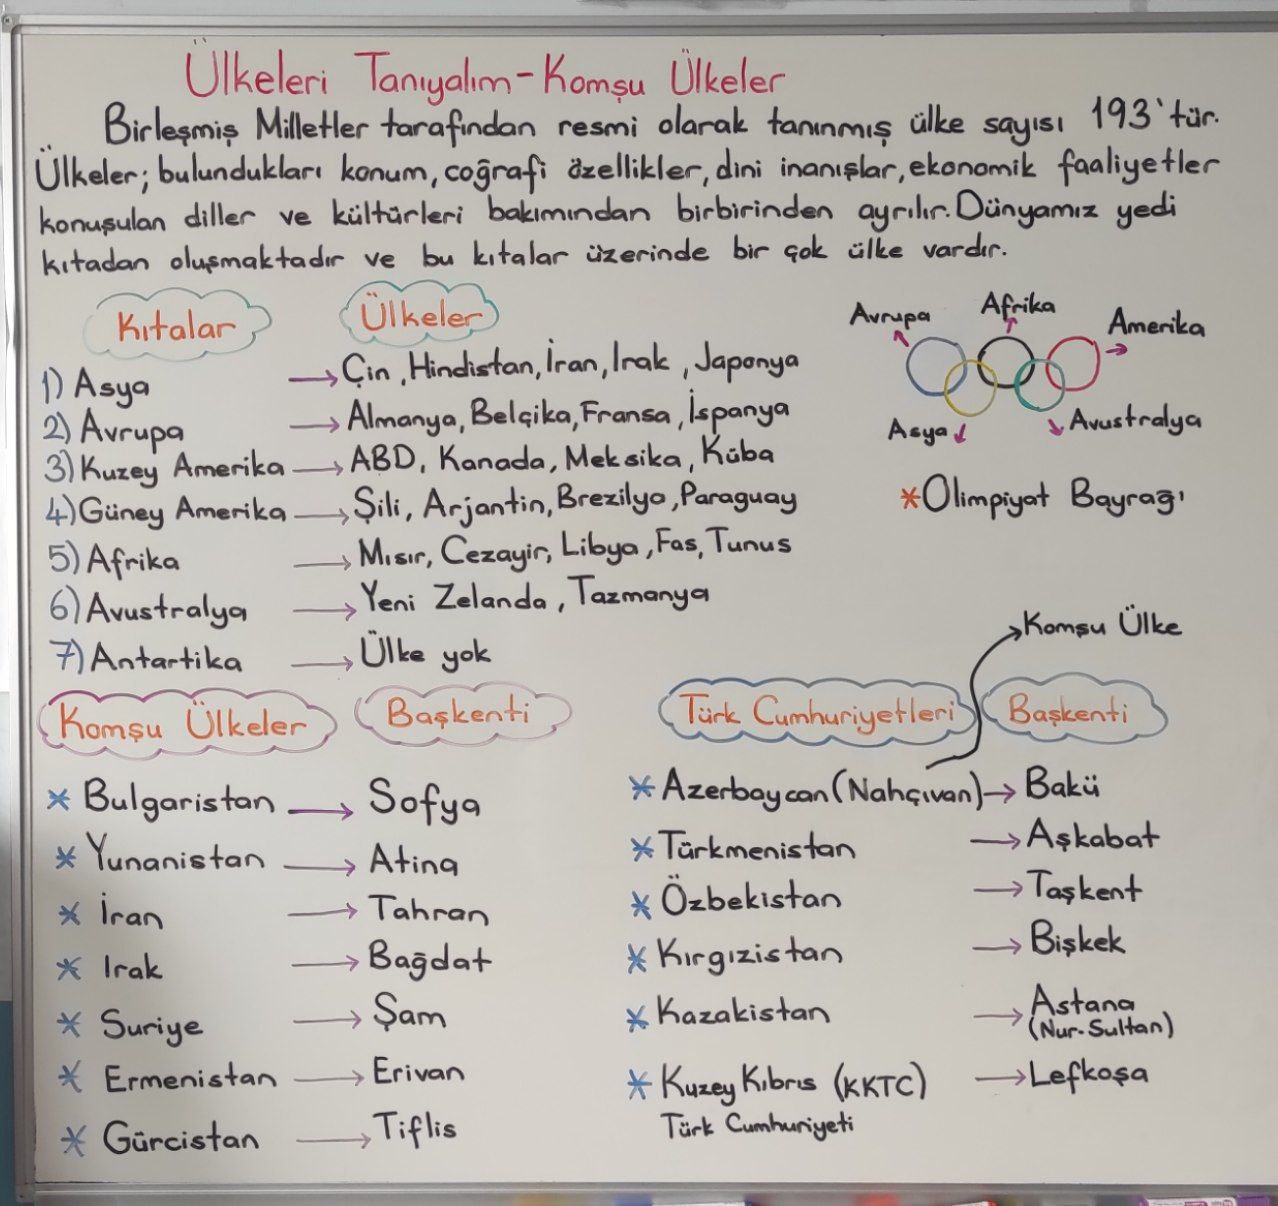 Ülkeleri Tanıyalım-Komşu Ülkeler
Birleşmiş Milletler tarafından resmi olarak tanınmış ülke sayısı 193'tür.
Ülkeler; bulundukları konum, coğrafi özellikler, dini inanışlar, ekonomik faaliyetler
konuşulan diller ve kültürleri bakımından birbirinden ayrılır. Dünyamız yedi
kıtadan oluşmaktadır ve bu kıtalar üzerinde bir çok ülke vardır.
Kıtalar Ülkeler
1) Asya → Çin, Hindistan, İran, Irak, Japonya
2) Avrupa → Almanya, Belçika, Fransa, İspanya
3) Kuzey Amerika → ABD, Kanada, Meksika, Küba
4) Güney Amerika → Şili, Arjantin, Brezilya, Paraguay
5) Afrika → Mısır, Cezayir, Libya, Fas, Tunus
6) Avustralya → Yeni Zelanda, Tazmanya
7) Antartika → Ülke yok
Avrupa Afrika Amerika
Asya Avustralya
* Olimpiyat Bayrağı
Komşu Ülke
Komşu Ülkeler Başkenti
* Bulgaristan → Sofya
* Yunanistan → Atina
* İran → Tahran
* Irak → Bağdat
* Suriye → Şam
* Ermenistan → Erivan
* Gürcistan → Tiflis
Türk Cumhuriyetleri Başkenti
* Azerbaycan (Nahçıvan) → Bakü
* Türkmenistan → Aşkabat
* Özbekistan → Taşkent
* Kırgızistan → Bişkek
* Kazakistan → Astana
(Nur-Sultan)
* Kuzey Kıbrıs (KKTC) → Lefkoşa
Türk Cumhuriyeti